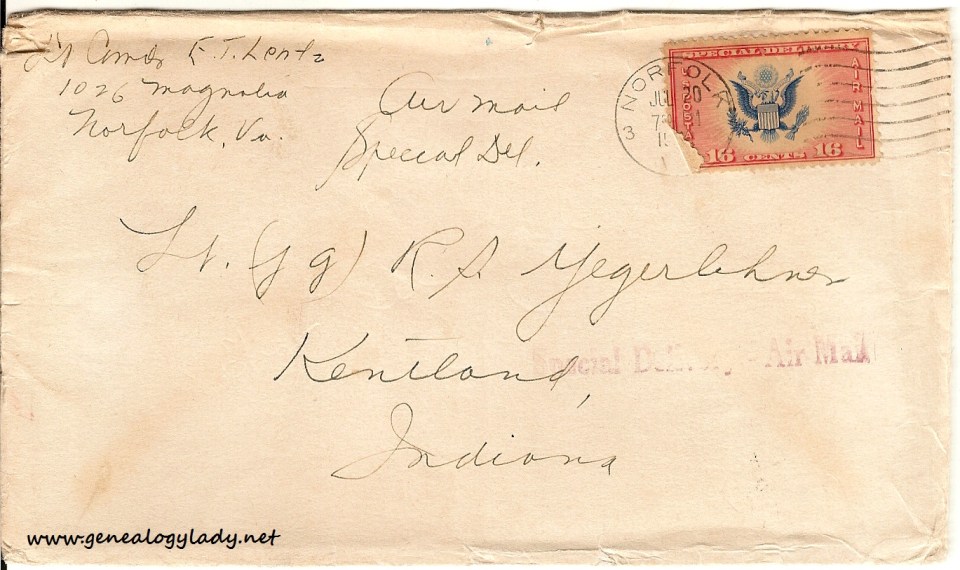 Lt Comdr E. T. Lentz
1026 Magnolia
Norfolk, Va.
Air mail
Special Del.
NORFOLK
JUL 20
3
SPECIAL DELIVERY
U.S. POSTA
AIR MAIL
16 CENTS 16
Lt. (jg) R. S. Yegerlehner
Kentland,
Indiana
Special Delivery Air Mail
www.genealogylady.net